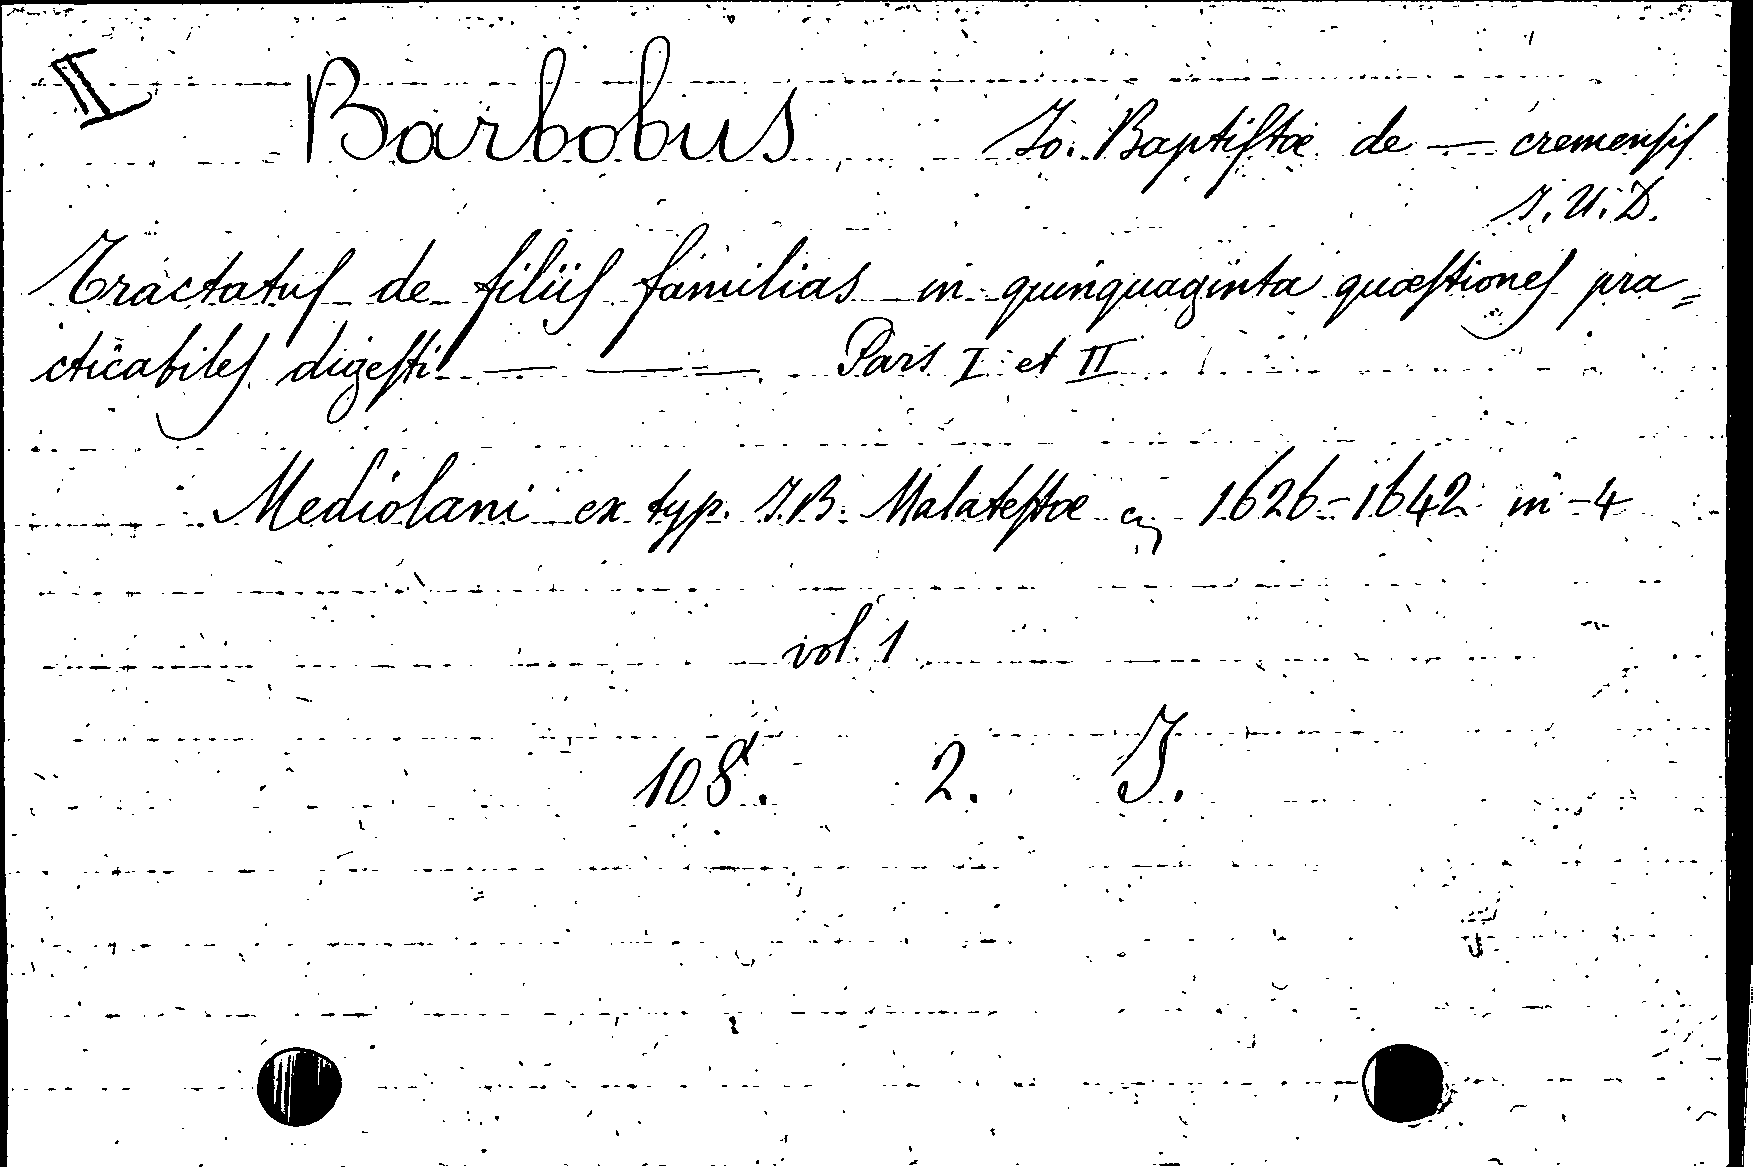 II Barbobus Jo. Baptistæ de — cremensis
J. U. D.
Tractatus de filiis familias in quinquaginta quæstiones pra=
cticabiles digesti — — — Pars I et II
Mediolani ex typ. J. B. Malatestæ 1626-1642 in-4
vol. 1
108. 2. J.